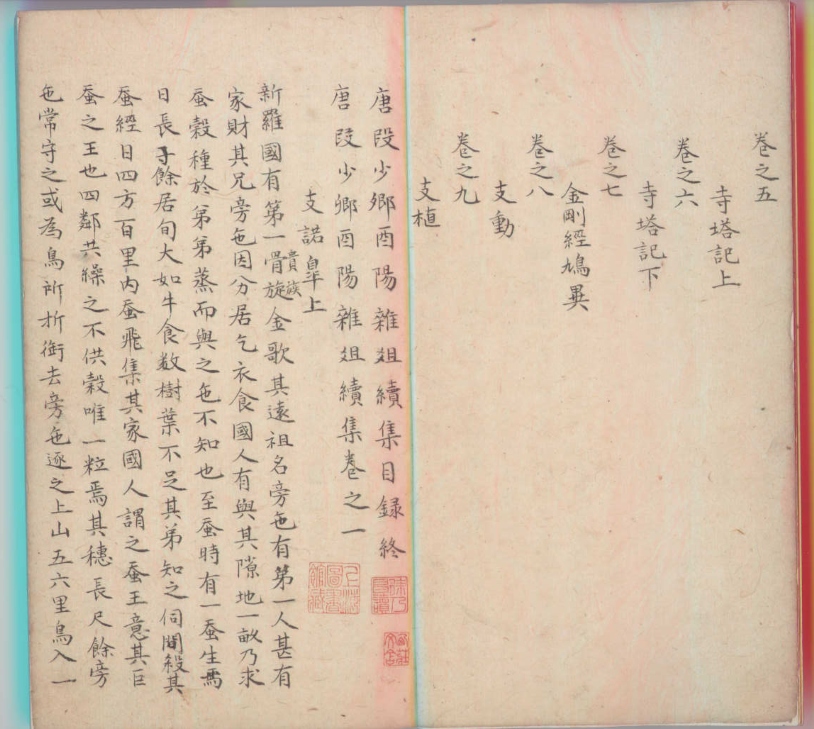 卷之五
寺塔記上
卷之六
寺塔記下
卷之七
金剛經鳩異
卷之八
支動
卷之九
支植
唐段少鄉酉陽雜俎續集目録終
唐段少鄉酉陽雜俎續集卷之一
支諾皐上
新羅國有第一骨貴族旋金歌其遠祖名旁㐌有第一人甚有
家財其兄旁㐌因分居乞衣食國人有與其隙地一畝乃求
蚕穀種於弟弟蒸而與之㐌不知也至蚕時有一蚕生焉
日長寸餘居旬大如牛食数樹葉不足其弟知之伺間殺其
蚕經日四方百里内蚕飛集其家國人謂之蚕王意其巨
蚕之王也四鄰共繰之不供穀唯一粒焉其穗長尺餘旁
㐌常守之或為鳥所折銜去旁㐌逐之上山五六里鳥入一